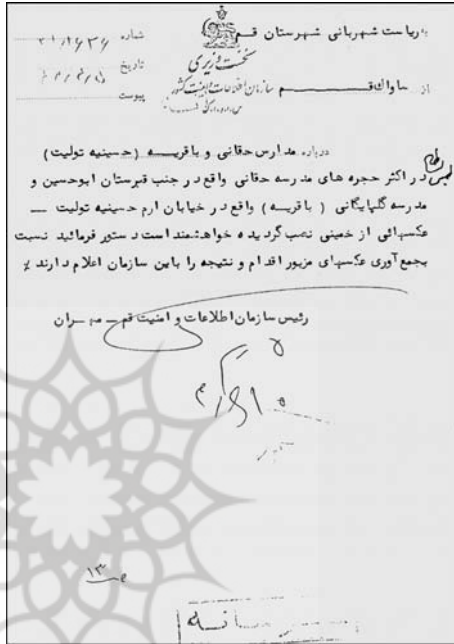 بریاست شهربانی شهرستان قم
شماره ۲۱/۲۶۳۶
نخست وزیری
تاریخ
از ساواك قــــم سازمان اطلاعات و امنیت کشور
پیوست
درباره مدارس حقانی و باقریــه (حسینیه تولیت)
در اکثر حجره های مدرسه حقانی واقع در جنب قبرستان ابوحسین و
مدرسه گلپایگانی ( باقریه ) واقع در خیابان ارم حسینیه تولیت ــ
عکسهائی از خمینی نصب گردیده خواهشمند است دستور فرمائید نسبت
بجمع آوری عکسهای مزبور اقدام و نتیجه را باین سازمان اعلام دارند
رئیس سازمان اطلاعات و امنیت قم ــ مهــران
۱۳